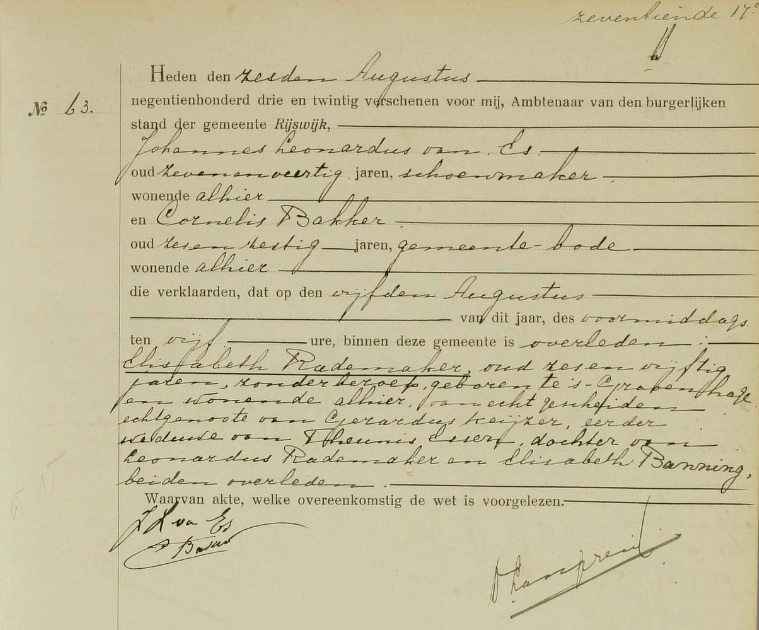 zeventiende 17e
No 63.
Heden den zesden Augustus
negentienhonderd drie en twintig verschenen voor mij, Ambtenaar van den burgerlijken
stand der gemeente Rijswijk,
Johannes Leonardus van Es
oud zevenenveertig jaren, schoenmaker
wonende alhier
en Cornelis Bakker
oud zesenzestig jaren, gemeente-bode
wonende alhier
die verklaarden, dat op den vijfden Augustus
van dit jaar, des voormiddags
ten vijf ure, binnen deze gemeente is overleden:
Elisabeth Rademaker, oud zesenvijftig
jaren, zonder beroep, geboren te 's-Gravenhage
en wonende alhier, van echt gescheiden
echtgenoote van Gerardus Keijzer, eerder
weduwe van Theunis Esser, dochter van
Leonardus Rademaker en Elisabeth Banning,
beiden overleden.
Waarvan akte, welke overeenkomstig de wet is voorgelezen.
J L van Es